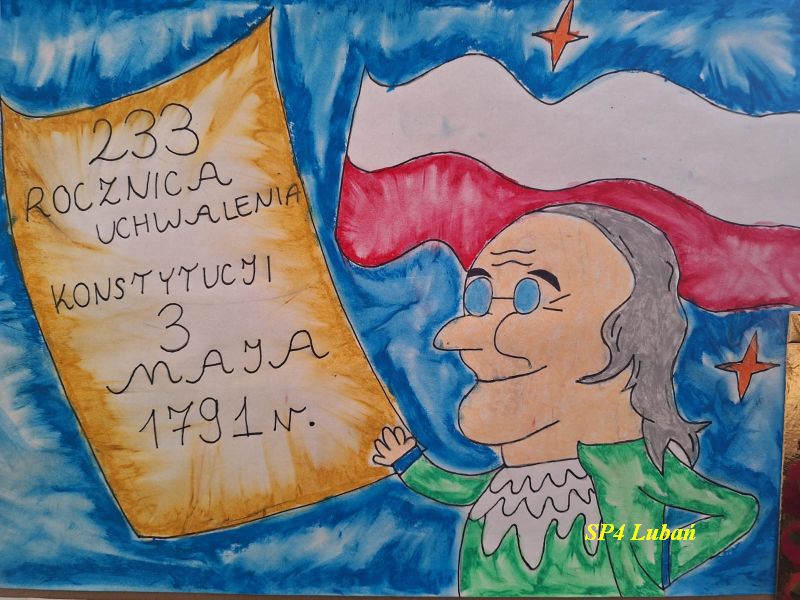 233
ROCZNICA
UCHWALENIA
KONSTYTUCJI
3
MAJA
1791 r.
SP4 Lubań